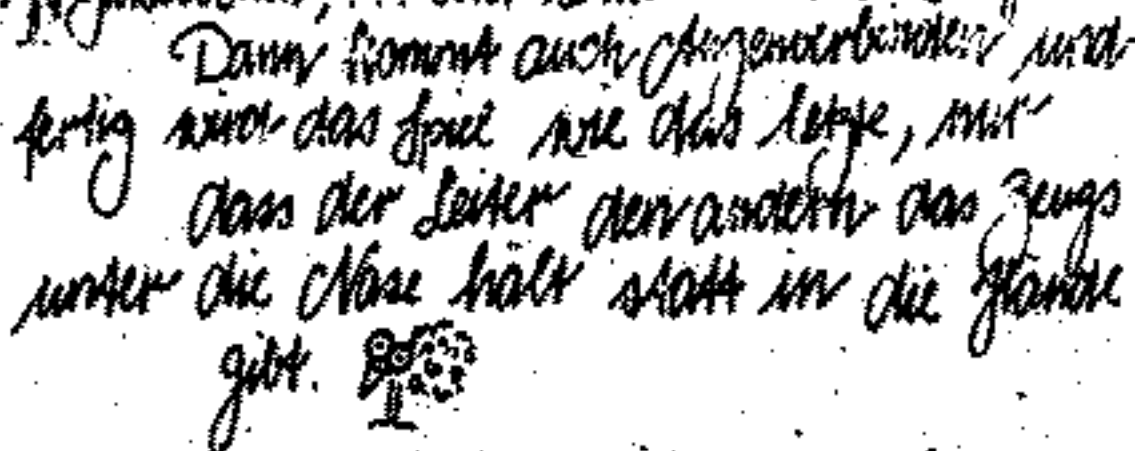 Dann kommt auch Augenverbinden" und
fertig wird das Spiel wie das letzte, nur
dass der Leiter den andern das Zeugs
unter die Nase hält statt in die Hände
gibt.